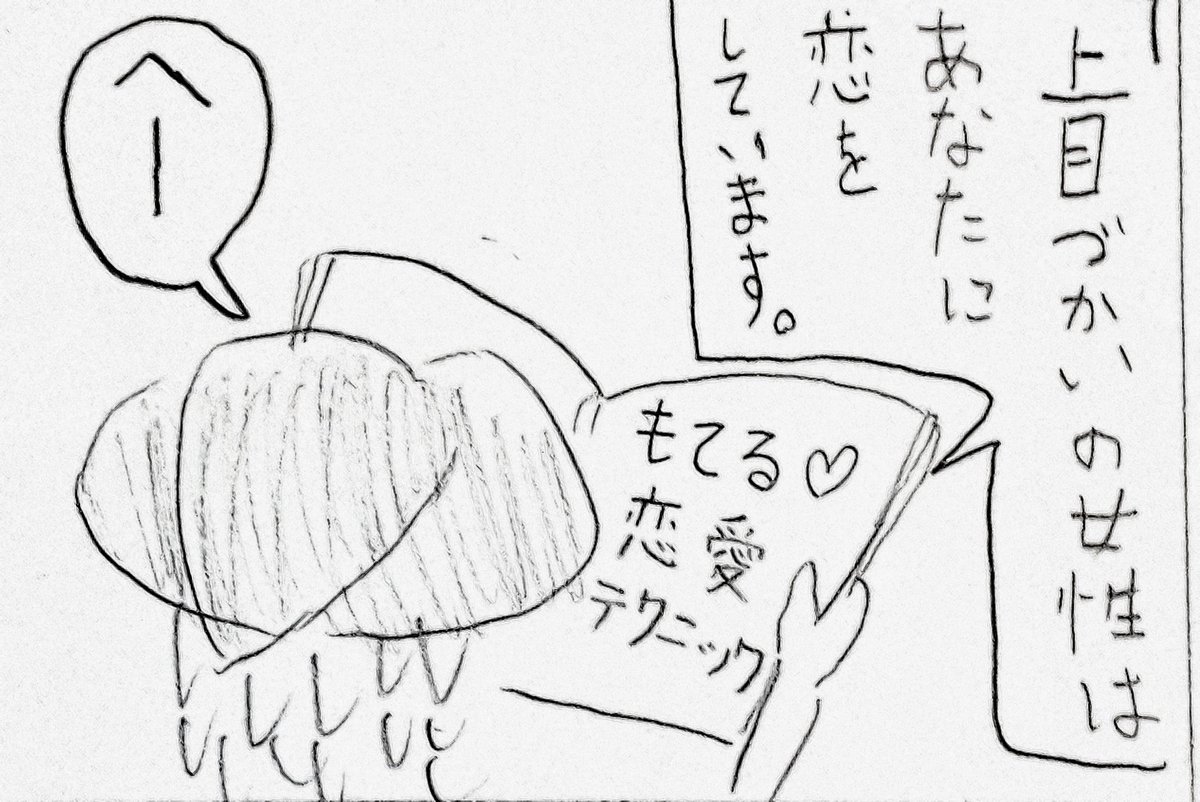 上目づかいの女性は
あなたに
恋を
しています。
もてる♡
恋愛
テクニック
へー